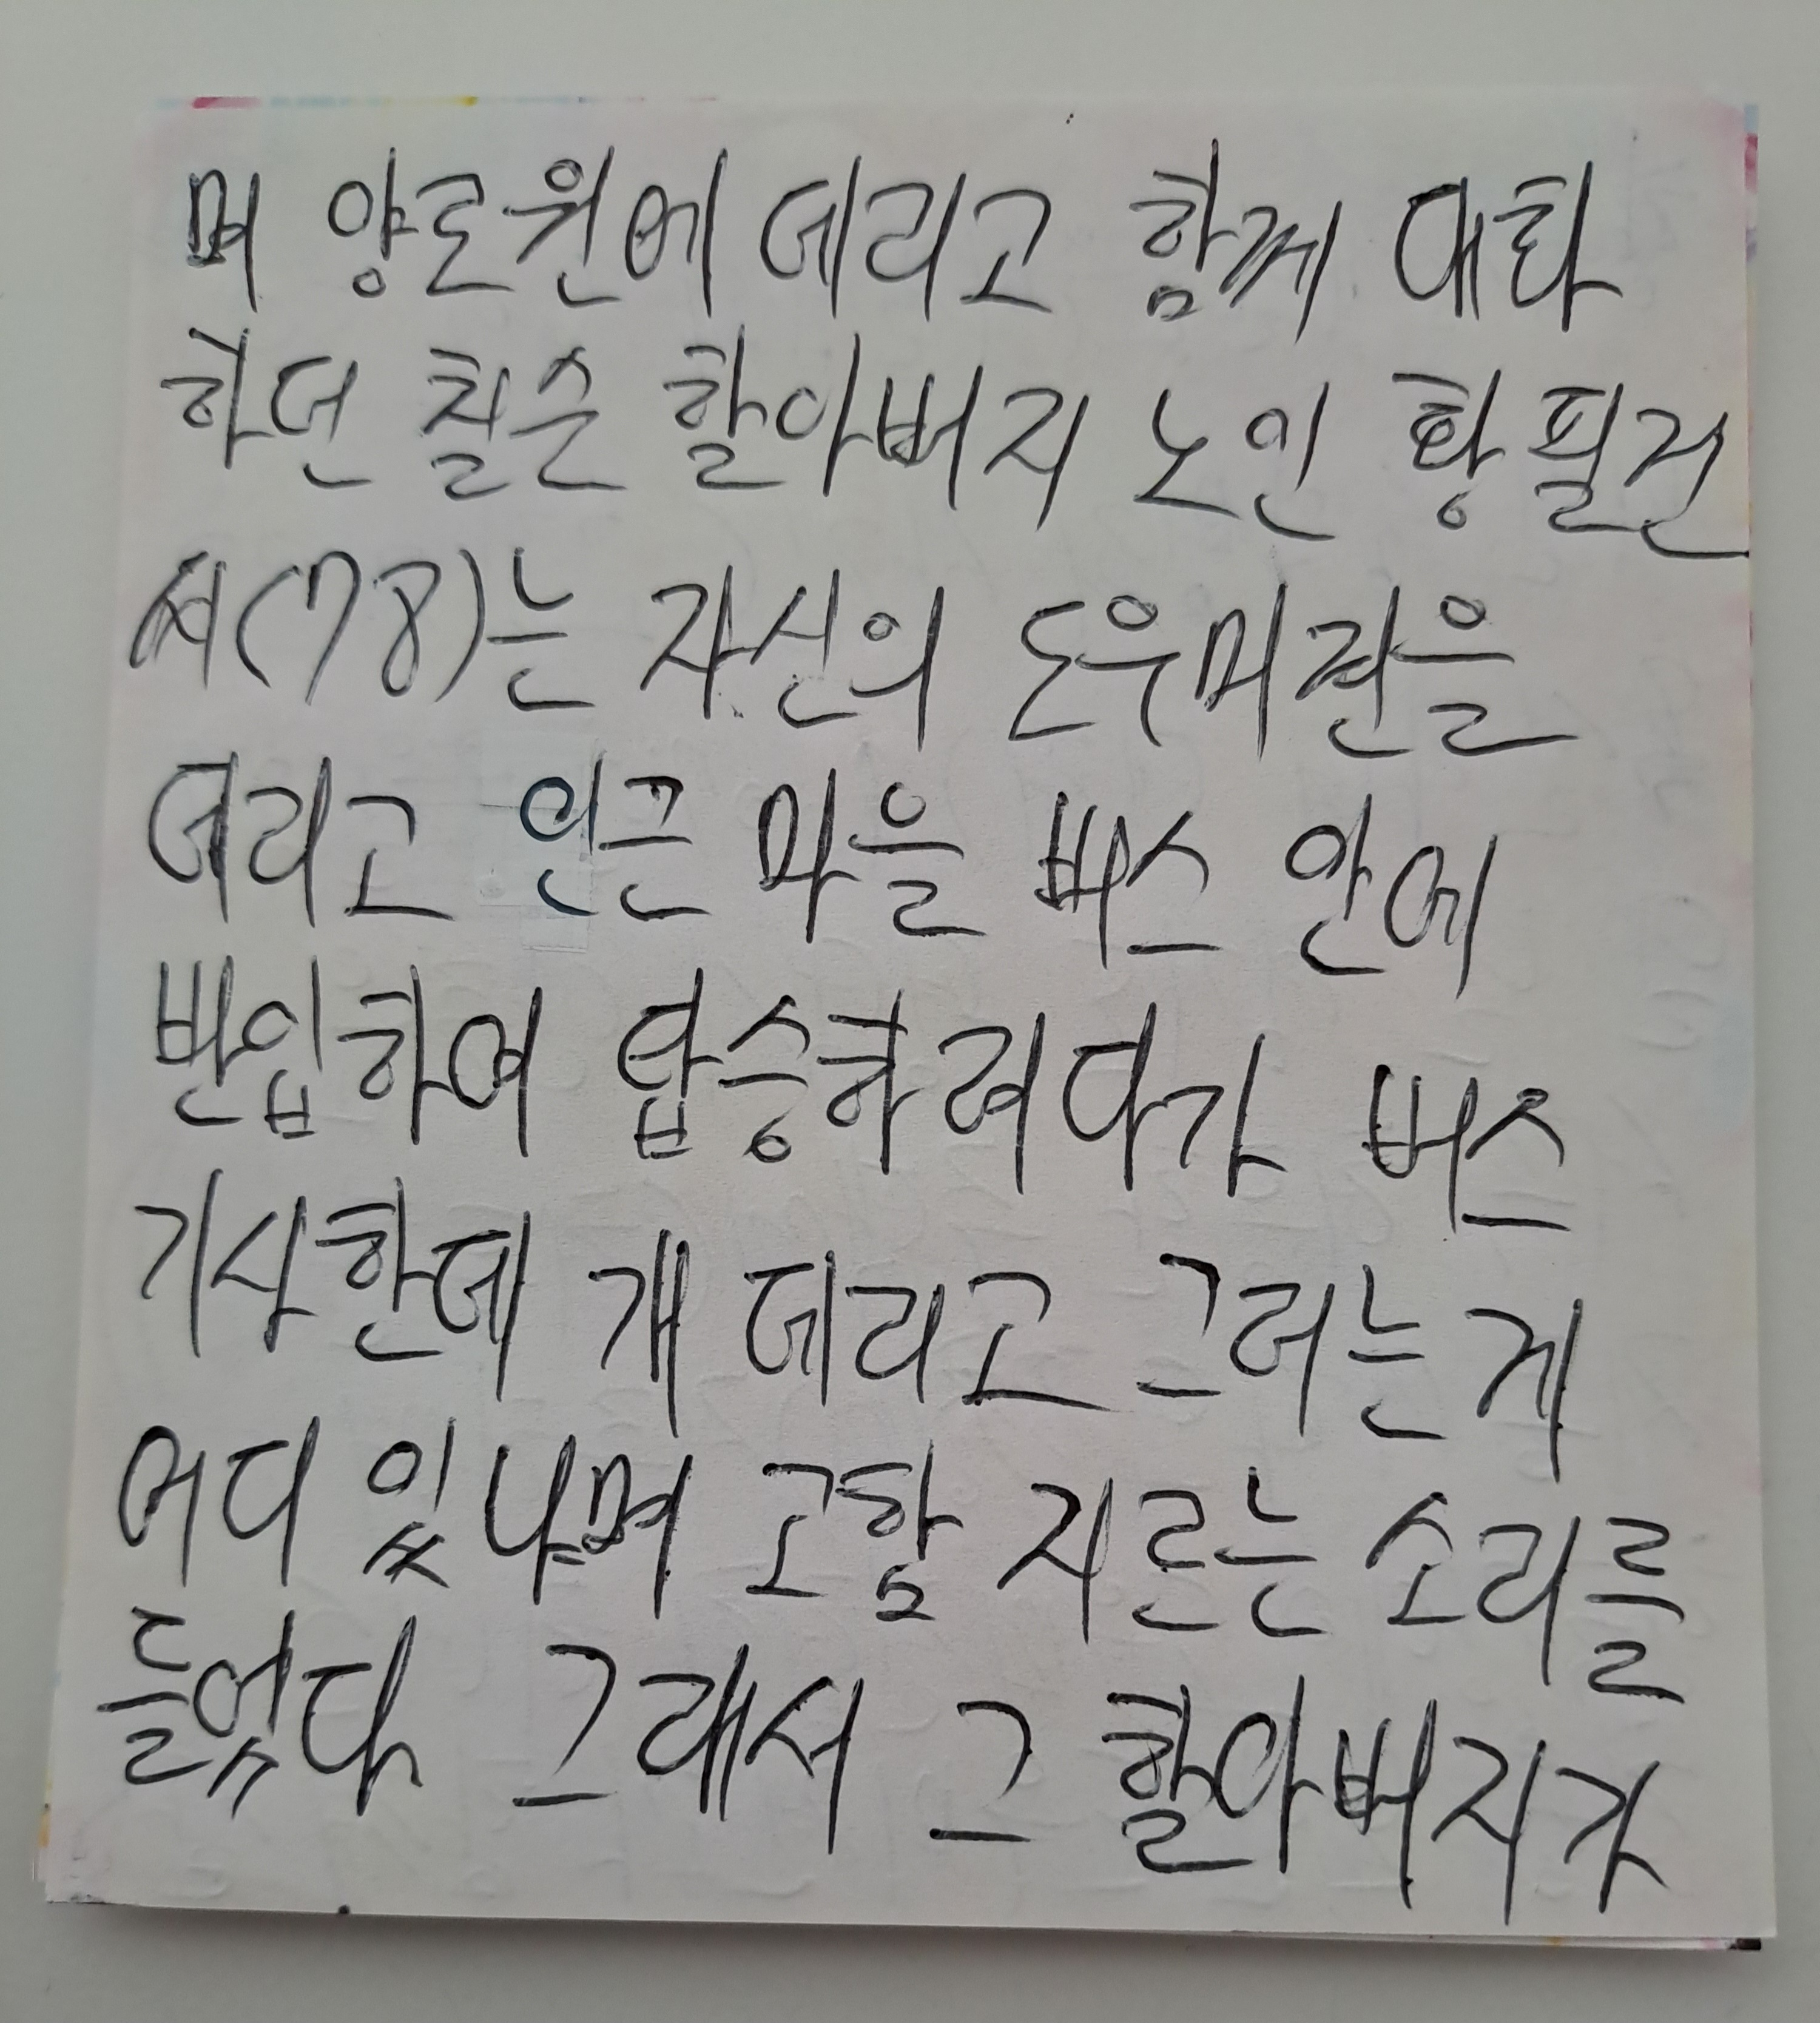 며 양로원에 데리고 함께 대화
하던 칠순 할아버지 노인 황필건
씨(78)는 자신의 도우미견을
데리고 인근 마을 버스 안에
반입하여 탑승하려다가 버스
기사한데 개 데리고 그러는게
어디 있냐며 고함 지르는 소리를
들었다 그래서 그 할아버지가